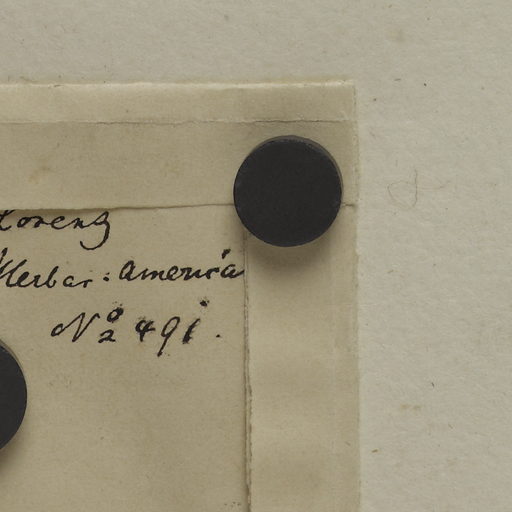 Lorentz
Herbar: America
No 491.